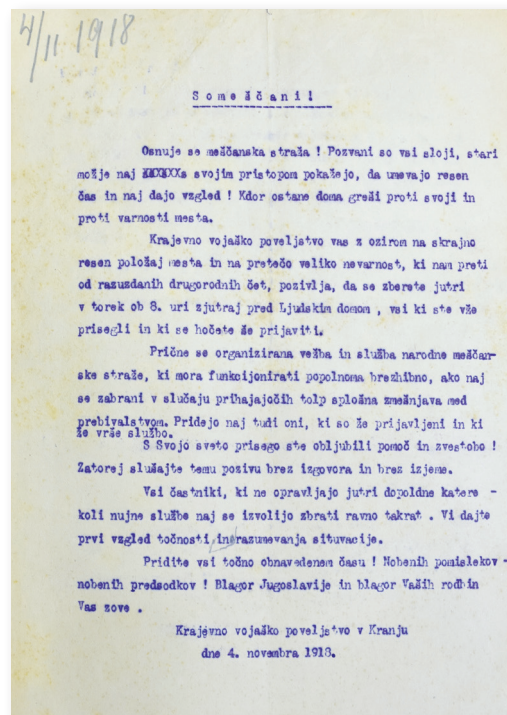 4/11 1918
Someščani!
Osnuje se meščanska straža ! Pozvani so vsi sloji, stari
možje naj XXXXXXs svojim pristopom pokažejo, da umevajo resen
čas in naj dajo vzgled ! Kdor ostane doma greši proti svoji in
proti varnosti mesta.
Krajevno vojaško poveljstvo vas z ozirom na skrajno
resen položaj mesta in na pretečo veliko nevarnost, ki nam preti
od razuzdanih drugorodnih čet, pozivlja, da se zberete jutri
v torek ob 8. uri zjutraj pred Ljudskim domom , vsi ki ste vže
prisegli in ki se hočete še prijaviti.
Prične se organizirana vežba in služba narodne meščan-
ske straže, ki mora funkcijonirati popolnoma brezhibno, ako naj
se zabrani v slučaju prihajajočih tolp splošna zmešnjava med
prebivalstvom. Pridejo naj tudi oni, ki so že prijavljeni in ki
že vrše službo.
S Svojo sveto prisego ste obljubili pomoč in zvestobo !
Zatorej slušajte temu pozivu brez izgovora in brez izjeme.
Vsi častniki, ki ne opravljajo jutri dopoldne katere -
koli nujne službe naj se izvolijo zbrati ravno takrat . Vi dajte
prvi vzgled točnosti in razumevanja situvacije.
Pridite vsi točno obnavedenem času ! Nobenih pomislekov -
nobenih predsodkov ! Blagor Jugoslavije in blagor Vaših rodbin
Vas zove .
Krajevno vojaško poveljstvo v Kranju
dne 4. novembra 1918.